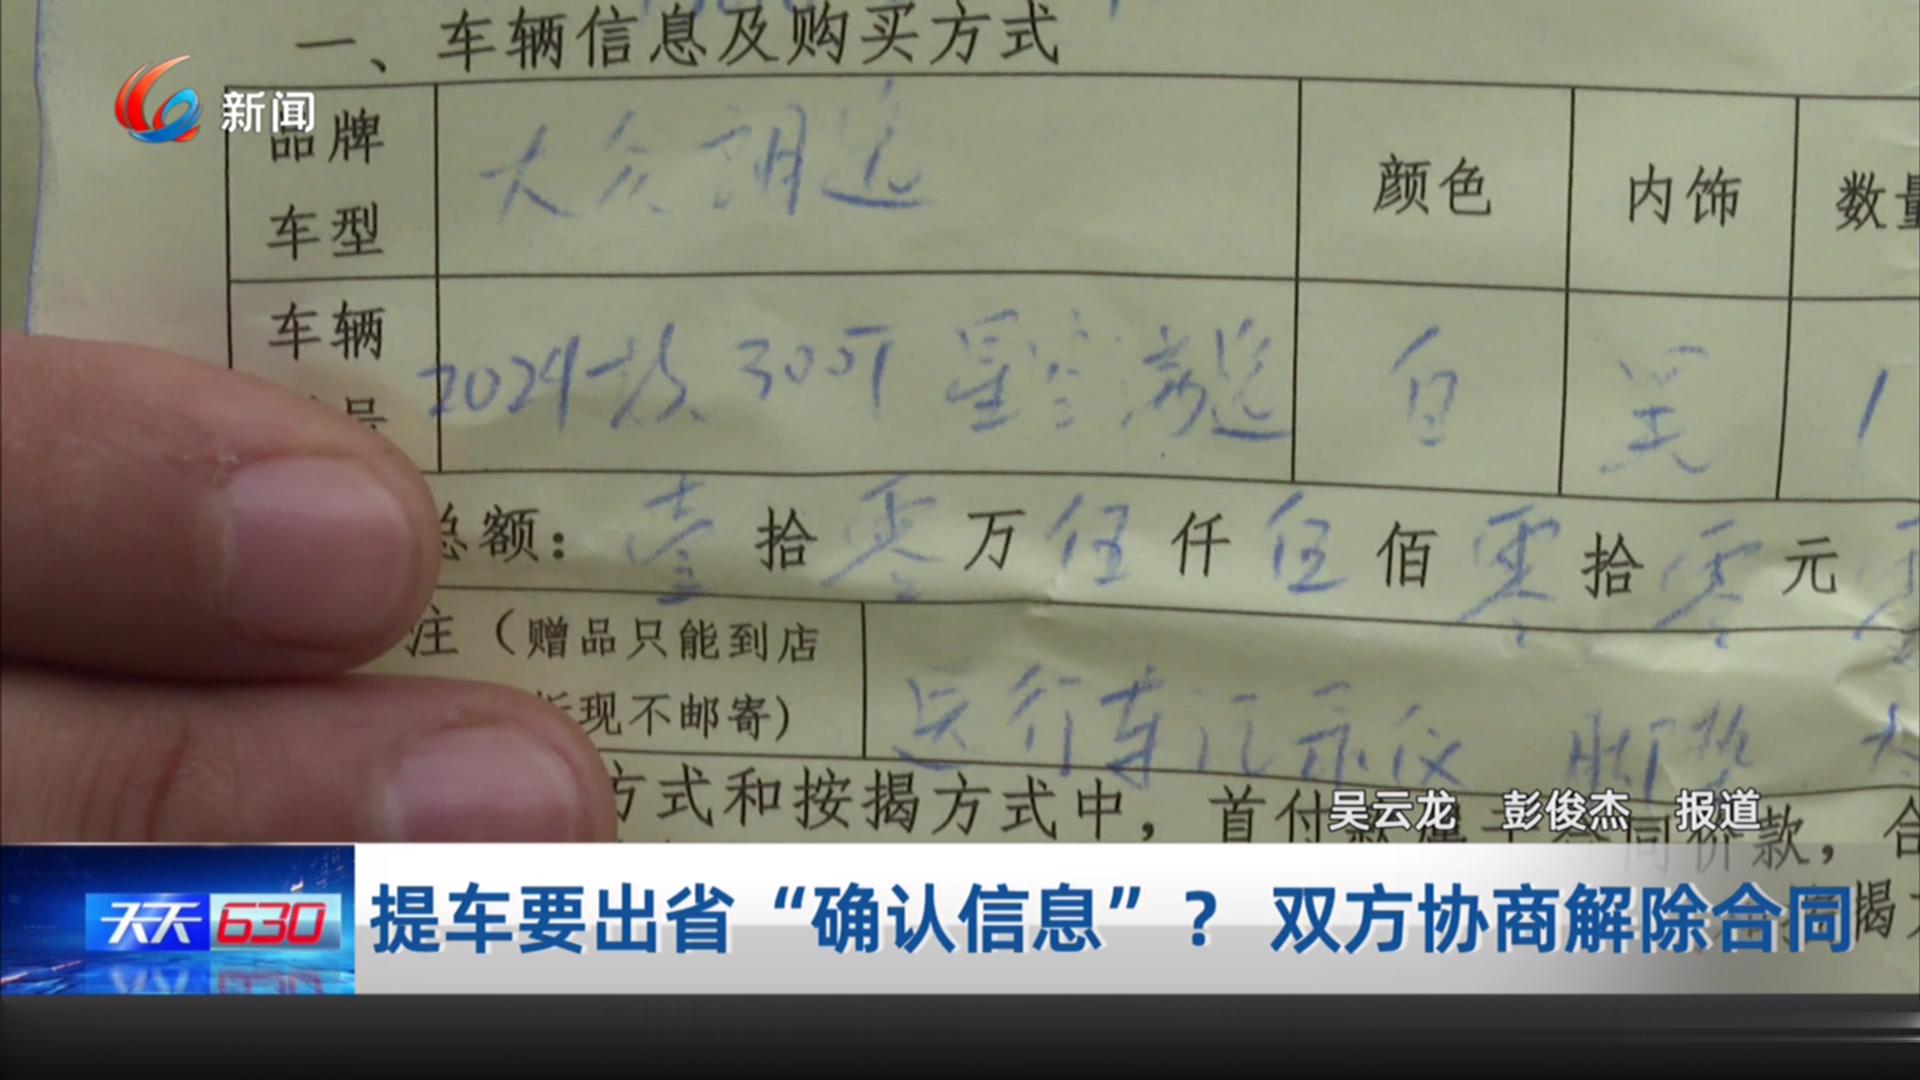 一、车辆信息及购买方式
新闻
品牌 大众朗逸 颜色 内饰 数量
车型
车辆 2024款 300万 星空满逸 白 黑 1
号
总额：壹拾零万伍仟伍佰零拾零元
注（赠品只能到店
折现不邮寄） 行车记录仪 脚垫
方式和按揭方式中，首付款属于合同价款，合
吴云龙 彭俊杰 报道
天天630 提车要出省“确认信息”？ 双方协商解除合同
揭方